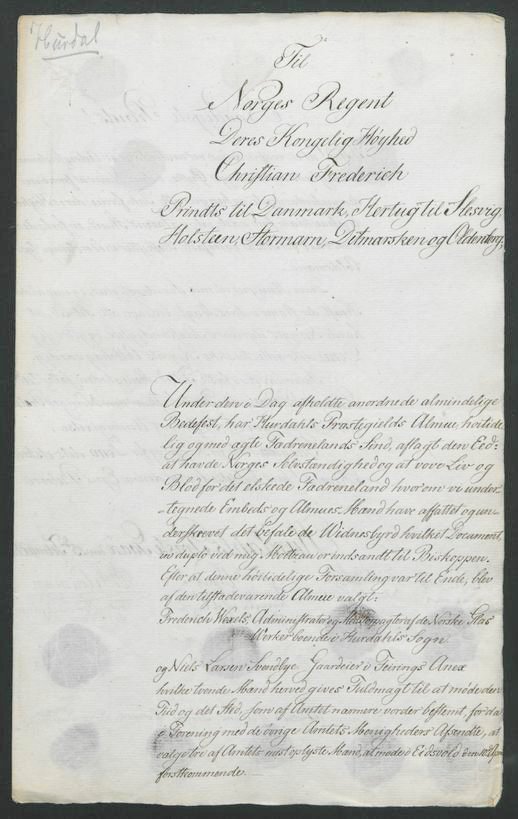 Hurdal
Til
Norges Regent
Deres Kongelig Høyhed
Christian Frederich
Prindts til Danmark, Hertug til Slesvig,
Holsteen, Stormarn, Ditmarsken og Oldenborg,
Under den i Dag afholdte anordnede almindelige
Bedefest, har Hurdahls Præstegields Almue høitide
lig og med ægte Fædrenelands Sind, aflagt den Eed:
at hævde Norges Selvstændighed og at vove Liv og
Blod for det elskede Fædreneland hvorom vi under
-tegnede Embeds og Almues Mænd have affattet og un-
derskrevet det befalede Widnesbyrd hvilket Document,
in duplo ved mig indsandt til Biskoppen.
Efter at denne høitidelige Forsamling var til Ende, blev
af den tilstædeværende Almue valgt:
Frederich Wexels, Administrator og af de Norske Glas
Werker boende i Hurdahls Sogn
og Niels Larsen Svendbye Gaardeier i Feirings Anex
hvilke tvende Mænd herved gives Fuldmagt til at møde den
Tid og det Sted, som af Amtet nærmere vorder bestemt, for da
i Forening med de øvrige Amtets Menigheders Afsendte, at
valge tre af Amtets mest oplyste Mænd, at møde i Eidsvold den 10de
førstkommende.